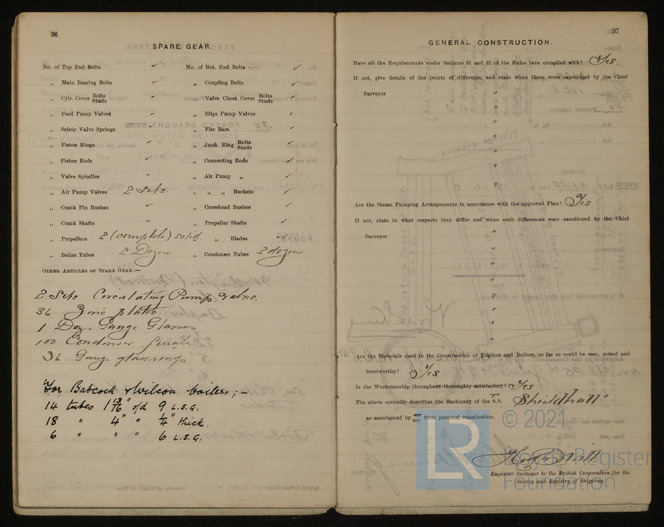 36
SPARE GEAR.
No. of Top End Bolts ✓ No. of Bot. End Bolts ✓
„ Main Bearing Bolts ✓ „ Coupling Bolts ✓
„ Cylr. Cover Bolts Studs ✓ „ Valve Chest Cover Bolts Studs ✓
„ Feed Pump Valves ✓ „ Bilge Pump Valves ✓
„ Safety Valve Springs ✓ „ Fire Bars ✓
„ Piston Rings ✓ „ Junk Ring Bolts Studs ✓
„ Piston Rods ✓ „ Connecting Rods ✓
„ Valve Spindles ✓ „ Air Pump „ ✓
„ Air Pump Valves 2 Sets. „ „ Buckets ✓
„ Crank Pin Bushes ✓ „ Crosshead Bushes ✓
„ Crank Shafts ✓ „ Propeller Shafts ✓
„ Propellers 2 (complete) solid „ „ Blades ✓
„ Boiler Tubes 2 Dozen „ Condenser Tubes 2 dozen
OTHER ARTICLES OF SPARE GEAR :—
2 Sets Circulating Pump valves.
36 Zinc plates
1 Doz. Gauge Glasses
100 Condenser ferrules
36 Gauge glass rings
For Babcock & Wilcox boilers;-
14 tubes 1 13/16 o/d 9 L.S.G.
18 " 4" " 1/4" thick.
6 " " " 6 L.S.G.
37
GENERAL CONSTRUCTION.
Have all the Requirements under Sections 31 and 32 of the Rules been complied with? Yes
If not, give details of the points of difference, and state when these were sanctioned by the Chief
Surveyor
Are the Steam Pumping Arrangements in accordance with the approved Plan? Yes
If not, state in what respects they differ and when such differences were sanctioned by the Chief
Surveyor
Are the Materials used in the Construction of Engines and Boilers, so far as could be seen, sound and
trustworthy? Yes
Is the Workmanship throughout thoroughly satisfactory? Yes
The above correctly describes the Machinery of the S.S.
as ascertained by from personal examination.
Engineer Surveyor to the British Corporation for the
Survey and Registry of Shipping.
© 2021
LR
Lloyd's Register
Foundation